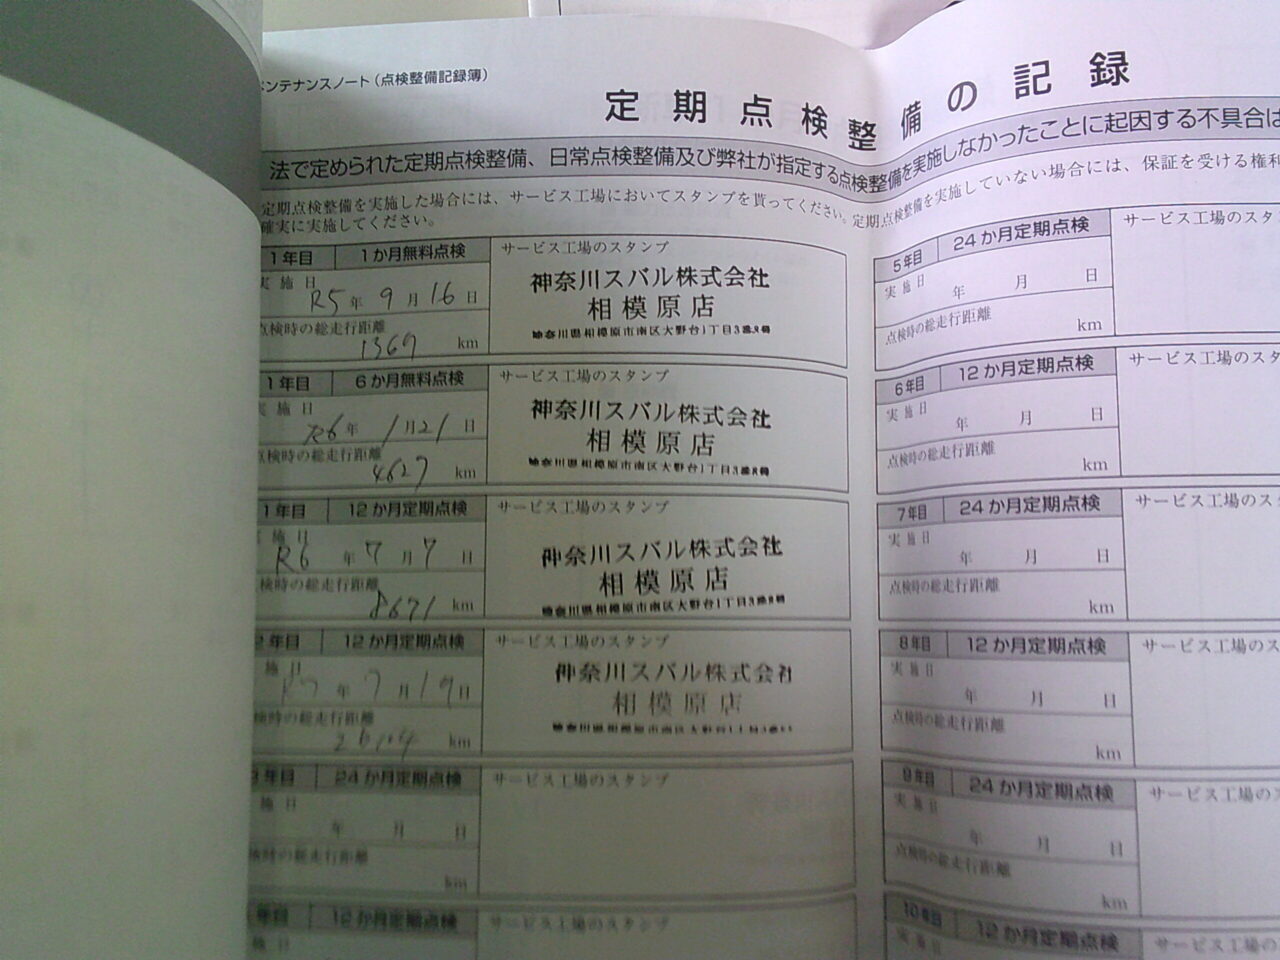 メンテナンスノート（点検整備記録簿）
定期点検整備の記録
法で定められた定期点検整備、日常点検整備及び弊社が指定する点検整備を実施しなかったことに起因する不具合は
定期点検整備を実施した場合には、サービス工場においてスタンプを貰ってください。定期点検整備を実施していない場合には、保証を受ける権利
確実に実施してください。
1年目 1か月無料点検 サービス工場のスタンプ
実施日
R5年 9月16日
点検時の総走行距離
1369 km
神奈川スバル株式会社
相模原店
神奈川県相模原市南区大野台1丁目3番8号
1年目 6か月無料点検 サービス工場のスタンプ
実施日
R6年 1月21日
点検時の総走行距離
4627 km
神奈川スバル株式会社
相模原店
神奈川県相模原市南区大野台1丁目3番8号
1年目 12か月定期点検 サービス工場のスタンプ
実施日
R6年 7月7日
検時の総走行距離
8671 km
神奈川スバル株式会社
相模原店
神奈川県相模原市南区大野台1丁目3番8号
2年目 12か月定期点検 サービス工場のスタンプ
実施日
R7年 7月19日
検時の総走行距離
km
神奈川スバル株式会社
相模原店
神奈川県相模原市南区大野台1丁目3
3年目 24か月定期点検 サービス工場のスタンプ
施日
年 月 日
検時の総走行距離
km
年目 12か月定期点検 サービス工場のスタンプ
日
5年目 24か月定期点検 サービス工場のスタ
実施日
年 月 日
点検時の総走行距離
km
6年目 12か月定期点検 サービス工場のスタ
実施日
年 月 日
点検時の総走行距離
km
7年目 24か月定期点検 サービス工場のスタ
実施日
年 月 日
点検時の総走行距離
km
8年目 12か月定期点検 サービス工場のス
実施日
年 月 日
点検時の総走行距離
km
9年目 24か月定期点検 サービス工場の
実施日
年 月 日
点検時の総走行距離
km
10年目 12か月定期点検 サービス工場の
実施日